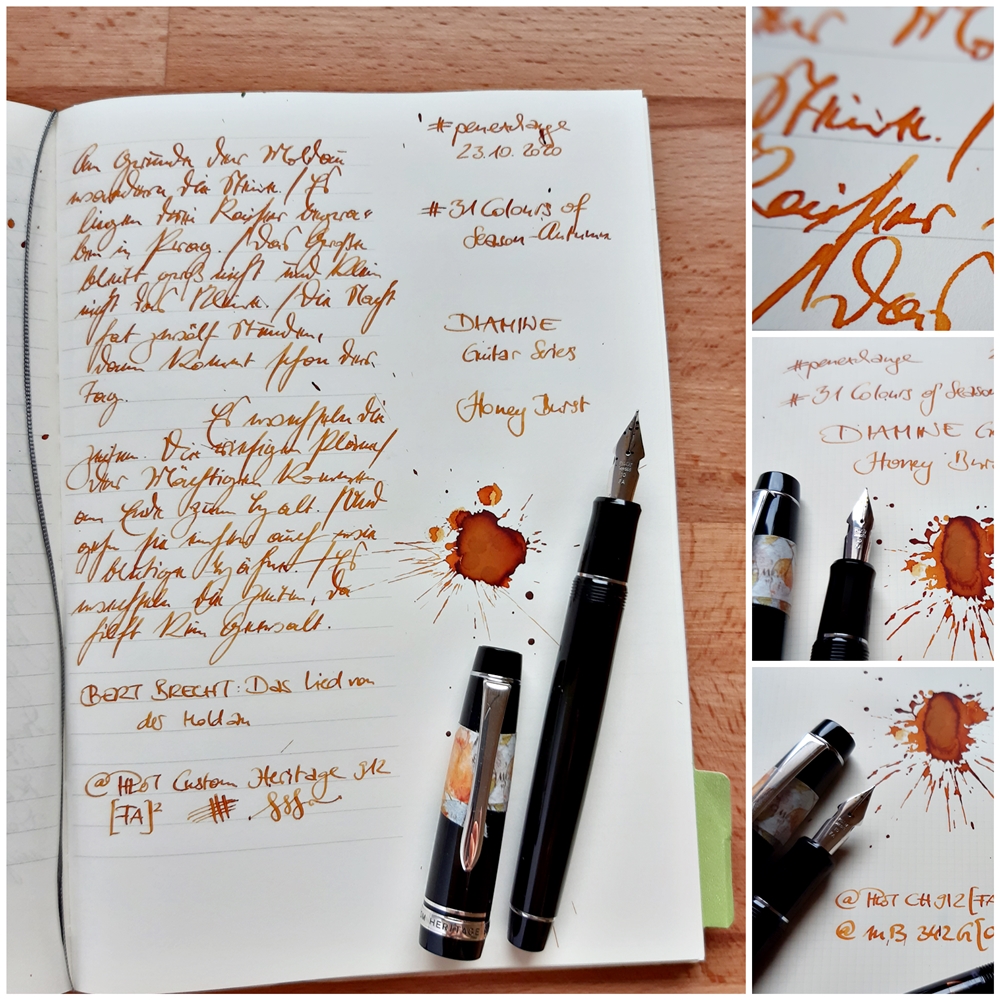 Am Grunde der Moldau
wandern die Steine / Es
liegen drei Kaiser begra-
ben in Prag. / Das Große
bleibt groß nicht und klein
nicht das Kleine. / Die Nacht
hat zwölf Stunden,
dann kommt schon der
Tag.
Es wechseln die
Zeiten. Die riesigen Pläne /
der Mächtigen kommen
am Ende zum Halt. / Und
gehn sie einher auch wie
blutige Hähne. / Es
wechseln die Zeiten, da
hilft kein Gewalt.
BERT BRECHT: Das Lied von
der Moldau
@ PILOT Custom Heritage 912
[FA]²
#penexchange
23.10.2020
#31 Colours of
Season-Autumn
DIAMINE
Guitar Series
Honey Burst
OM HERITAGE
Steine. /
Kaiser
/ Das
#penexchange
#31 Colours of Season
DIAMINE G
Honey Burs
@ PILOT CH 912 [FA
@ MB 342 G [O